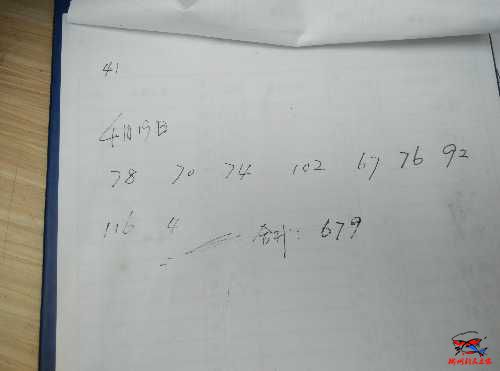 41
4月19日
78 70 74 102 67 76 92
116 4 合计: 679